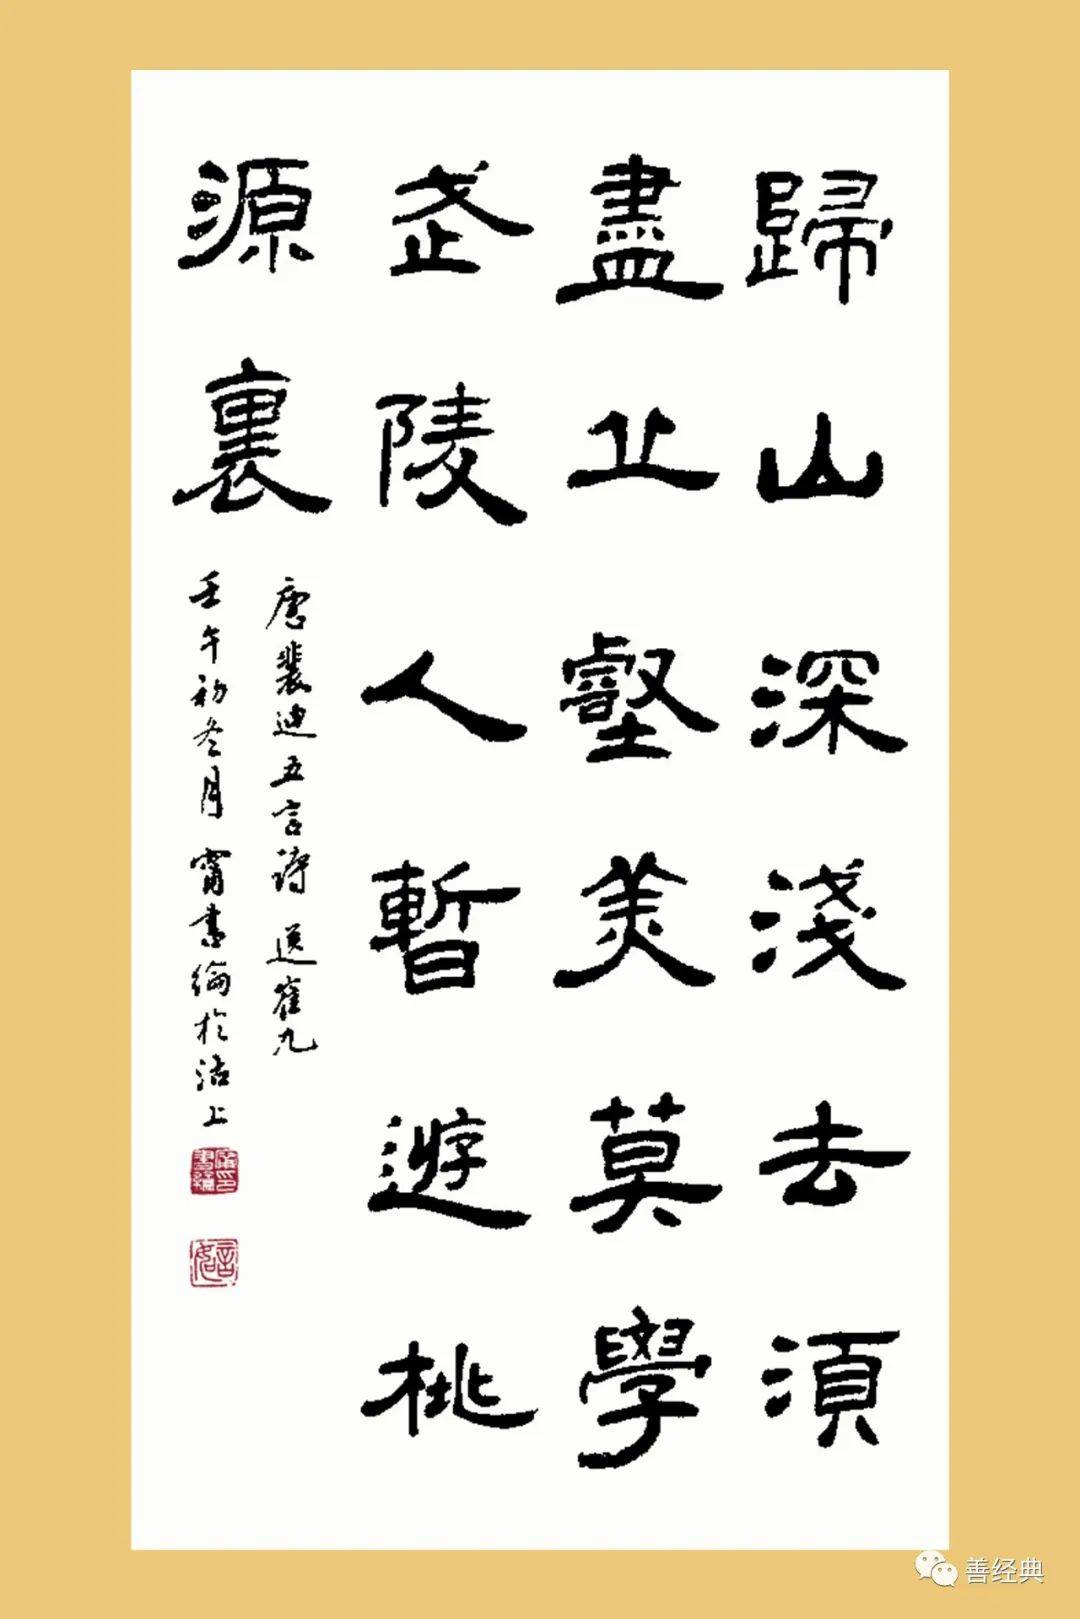 歸山深淺去須
盡丘壑美莫學
武陵人暫遊桃
源裏
唐裴迪五言詩 送崔九
壬午初冬月 甯書綸於沽上
善经典